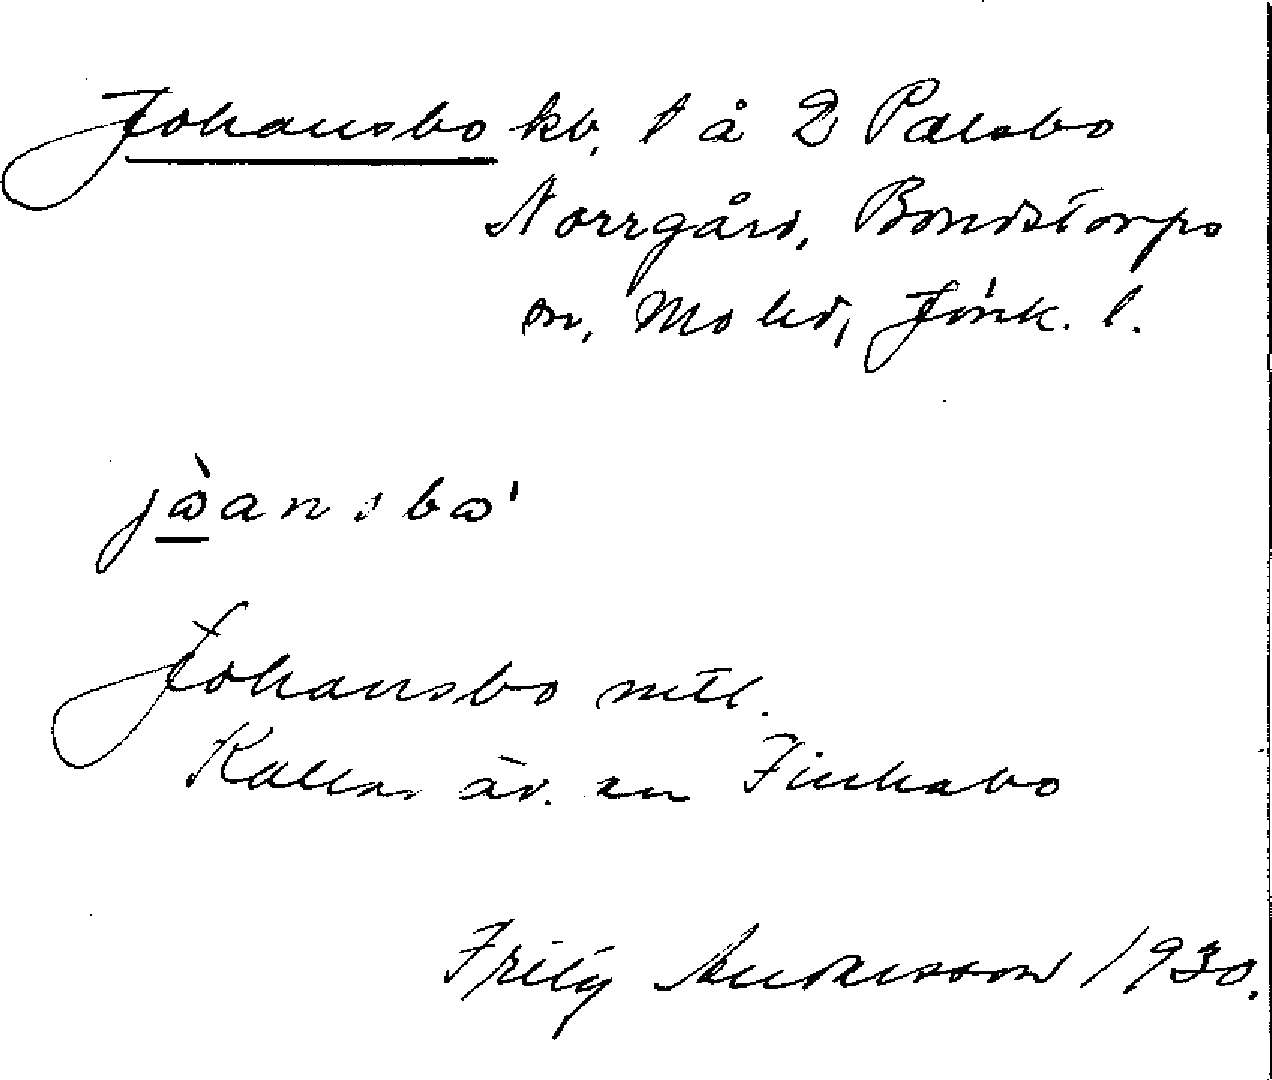 Johansbo kv. 1 å 2 Palsbo
Norrgård, Bondstorps
sn, Mo hd, Jönk. l.
jàansbo'
Johansbo mtl.
Kallas äv. en
Fritz Andersson 1930.